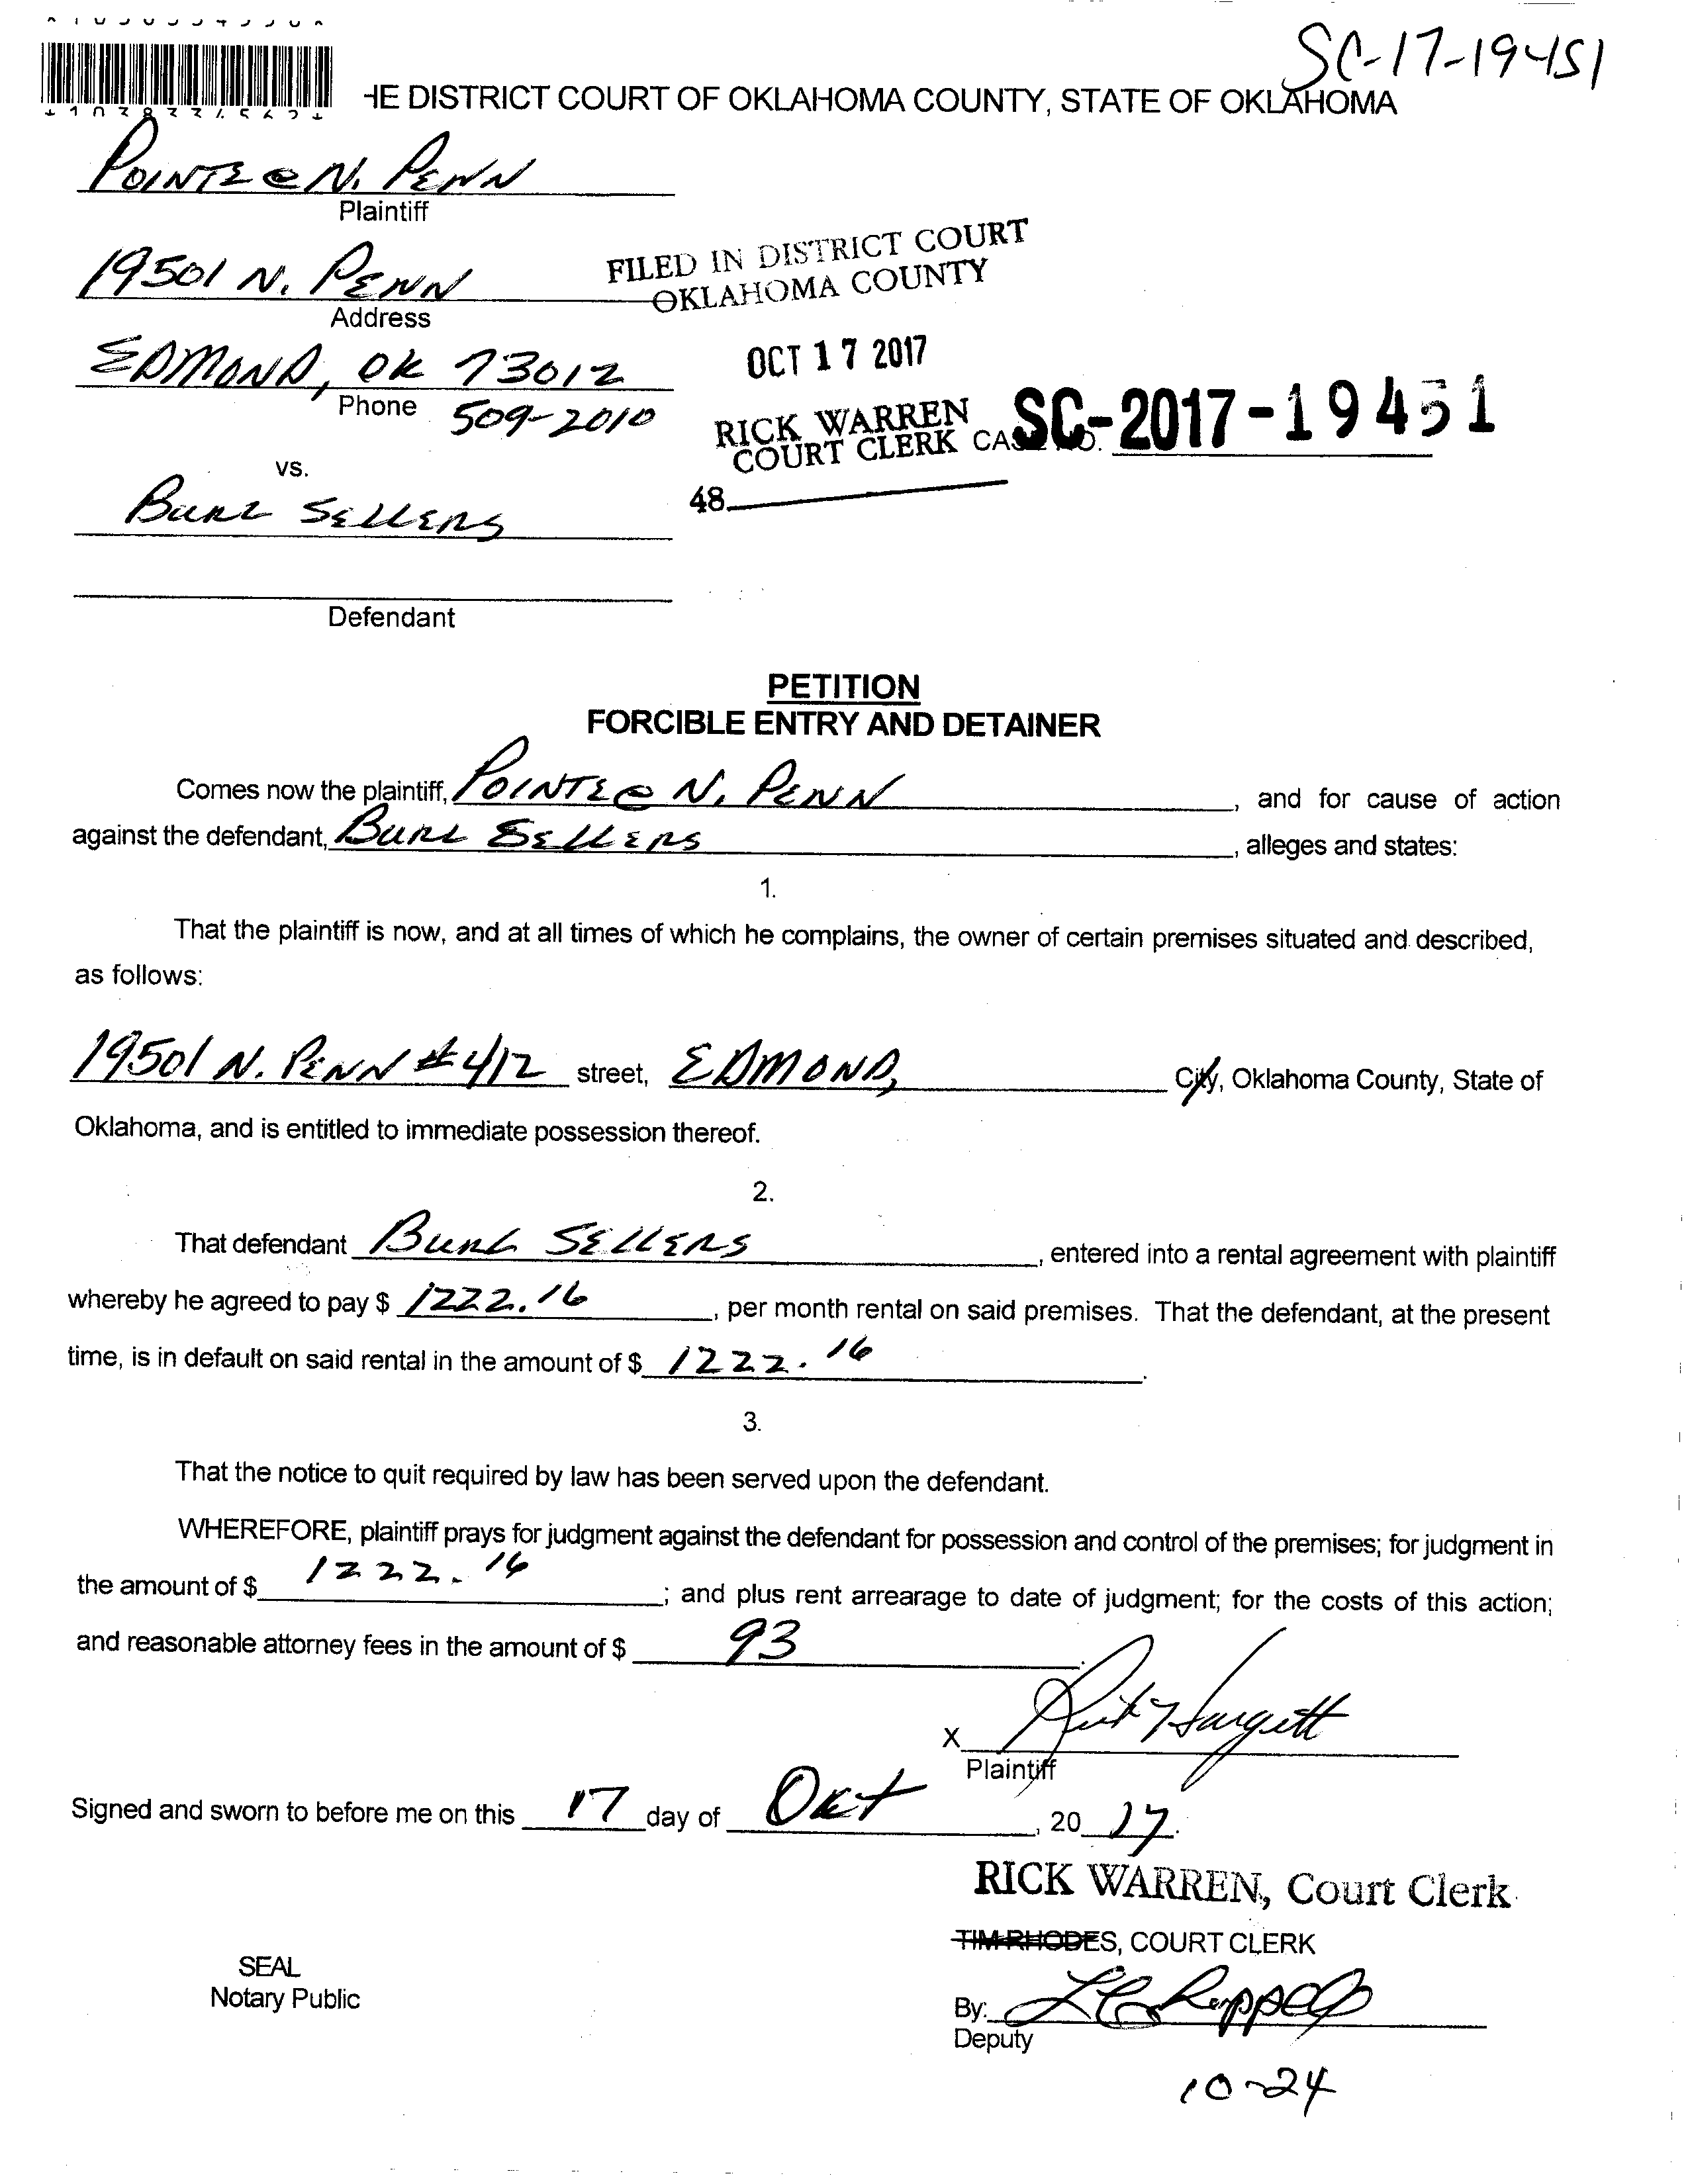 SC-17-19451
HE DISTRICT COURT OF OKLAHOMA COUNTY, STATE OF OKLAHOMA
POINTE @ N. PENN
Plaintiff
19501 N. PENN
Address
FILED IN DISTRICT COURT
OKLAHOMA COUNTY
EDMOND, OK 73012
Phone 509-2010
OCT 17 2017
RICK WARREN
COURT CLERK
CASE NO. SC-2017-19451
48
vs.
BURL SELLERS
Defendant
PETITION
FORCIBLE ENTRY AND DETAINER
Comes now the plaintiff, POINTE @ N. PENN, and for cause of action
against the defendant, BURL SELLERS, alleges and states:
1.
That the plaintiff is now, and at all times of which he complains, the owner of certain premises situated and described,
as follows:
19501 N. PENN #412 street, EDMOND, City, Oklahoma County, State of
Oklahoma, and is entitled to immediate possession thereof.
2.
That defendant BURL SELLERS, entered into a rental agreement with plaintiff
whereby he agreed to pay $ 1222.16, per month rental on said premises. That the defendant, at the present
time, is in default on said rental in the amount of $ 1222.16.
3.
That the notice to quit required by law has been served upon the defendant.
WHEREFORE, plaintiff prays for judgment against the defendant for possession and control of the premises; for judgment in
the amount of $ 1222.16; and plus rent arrearage to date of judgment; for the costs of this action;
and reasonable attorney fees in the amount of $ 93.
X Hargett
Plaintiff
Signed and sworn to before me on this 17 day of Oct, 20 17.
RICK WARREN, Court Clerk
TIM RHODES, COURT CLERK
SEAL
Notary Public
By:
Deputy
10-24